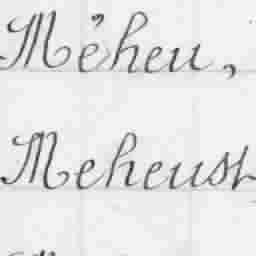 Méheu,
Meheust